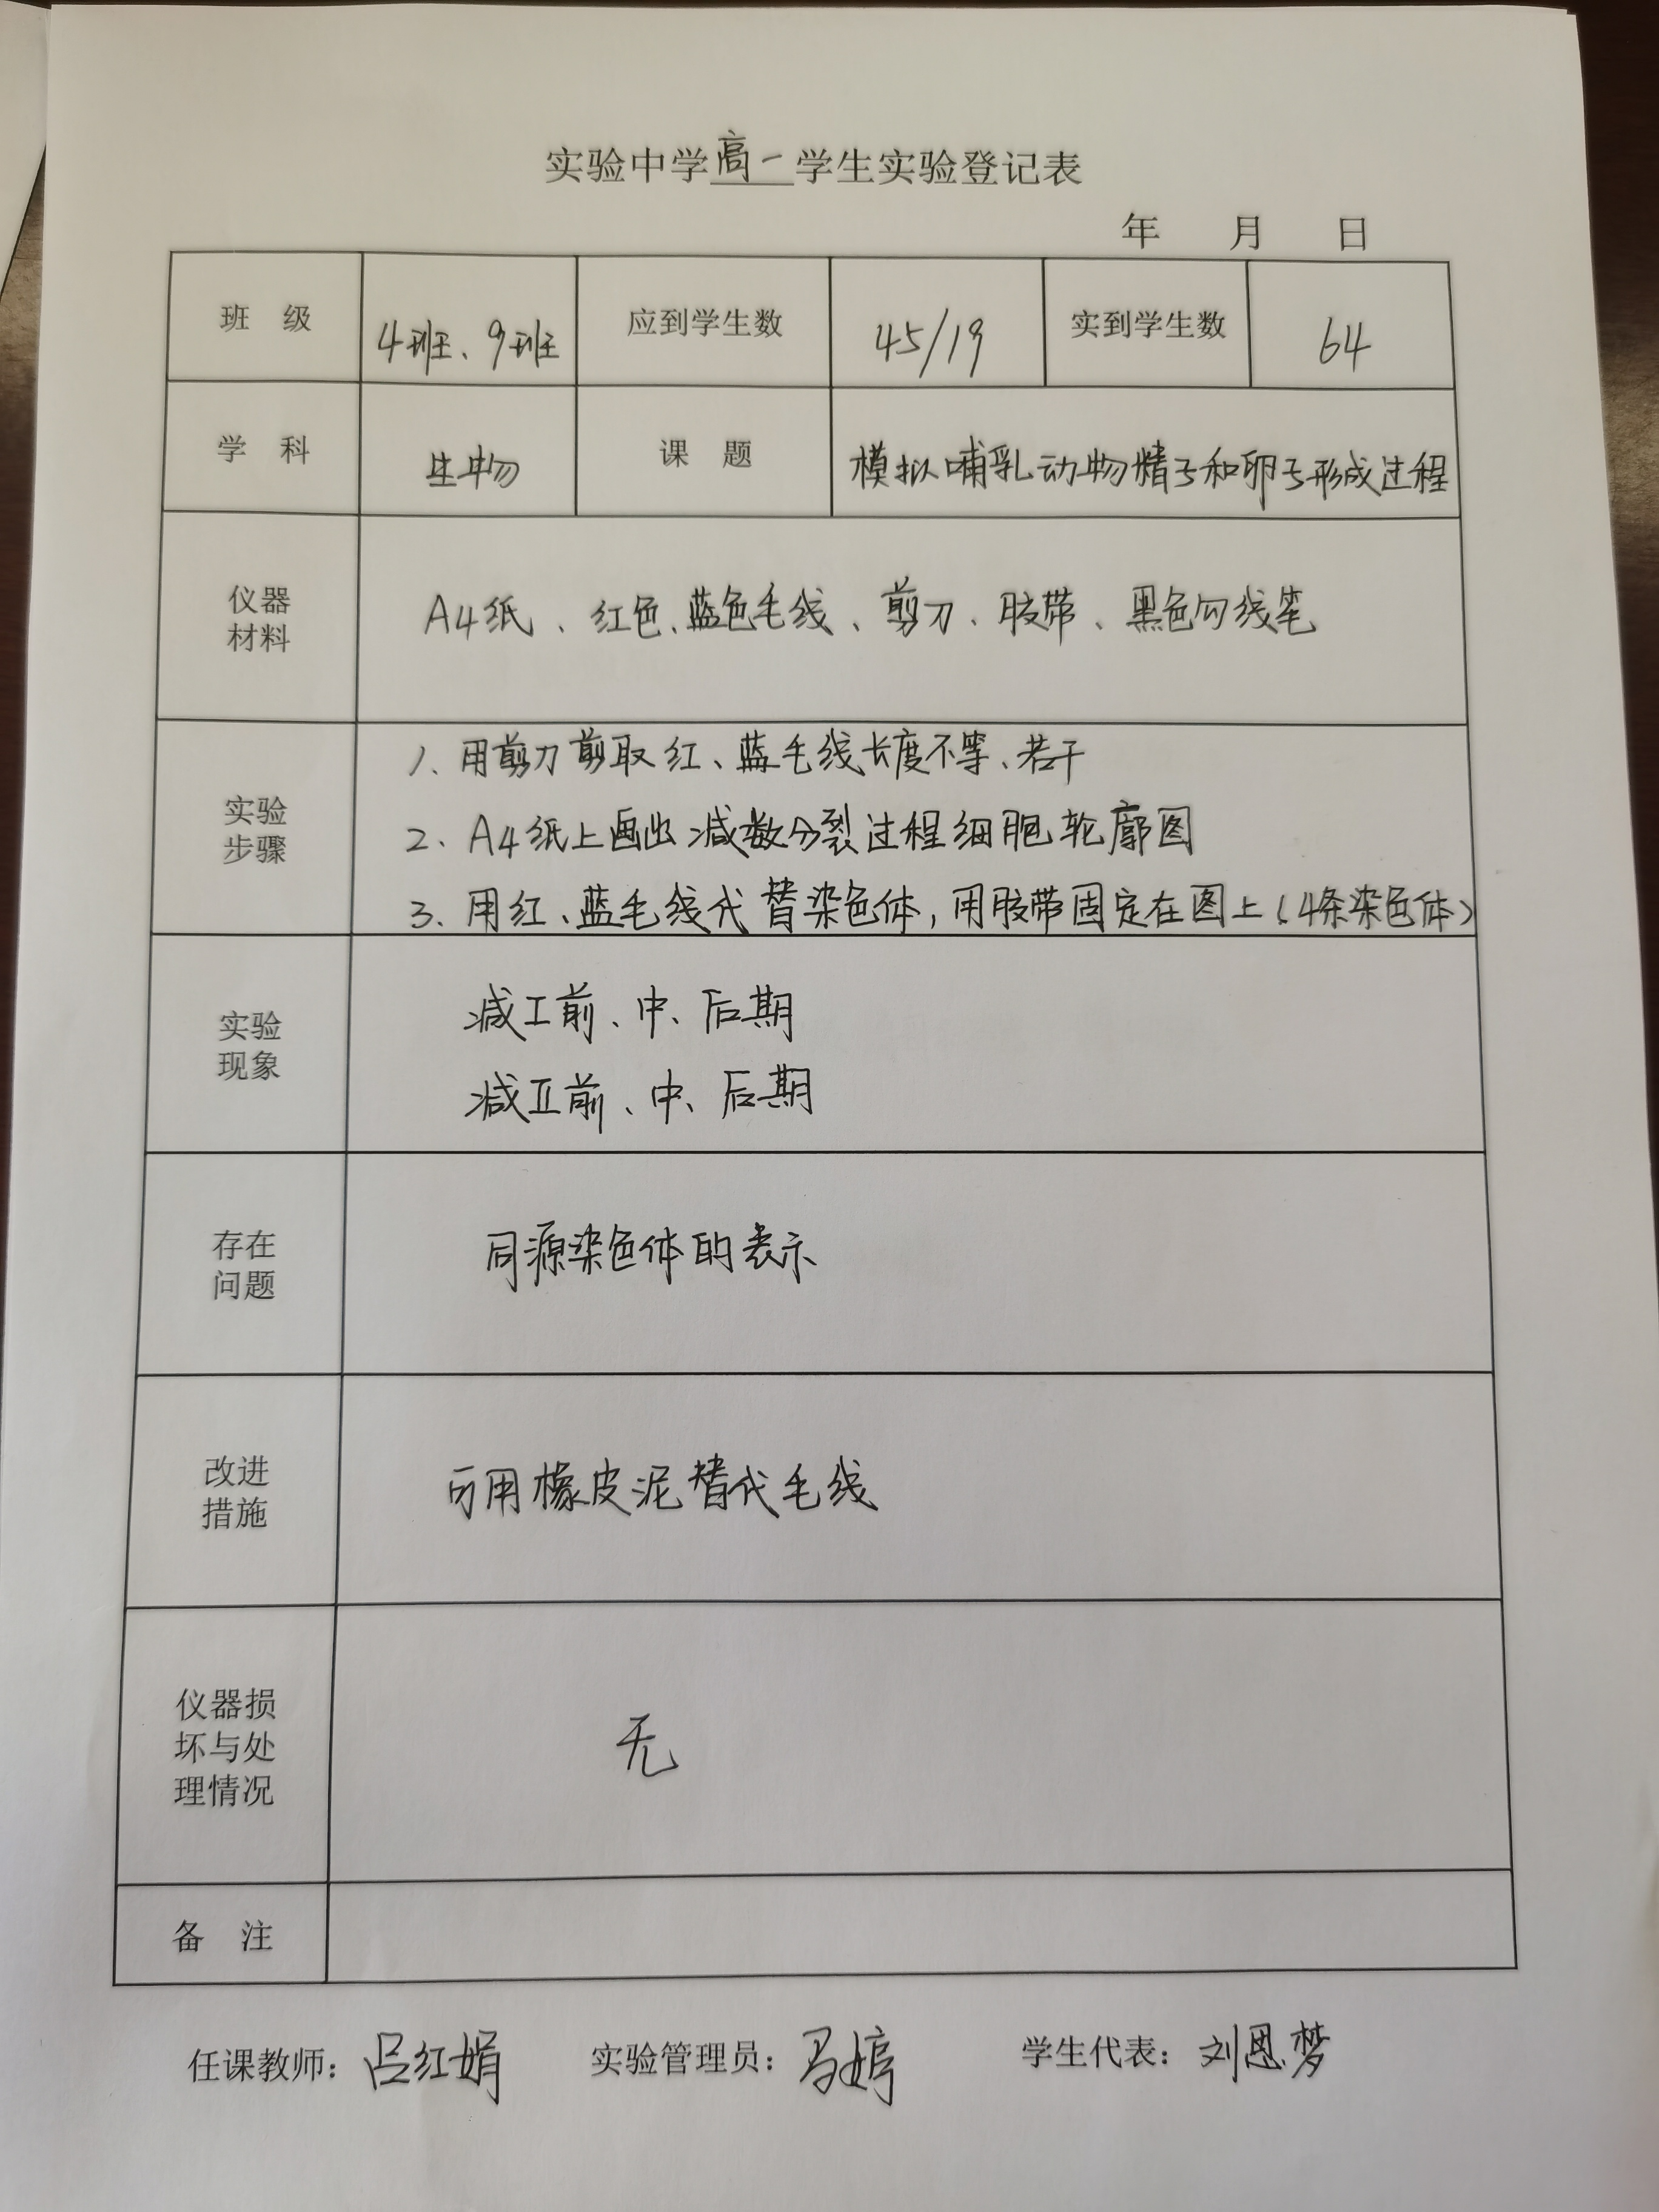 实验中学高一学生实验登记表
年 月 日
班 级 4班、9班 应到学生数 45/19 实到学生数 64
学 科 生物 课 题 模拟哺乳动物精子和卵子形成过程
仪器
材料
A4纸、红色、蓝色毛线、剪刀、胶带、黑色勾线笔
实验
步骤
1、用剪刀剪取红、蓝毛线长度不等、若干
2、A4纸上画出减数分裂过程细胞轮廓图
3、用红、蓝毛线代替染色体，用胶带固定在图上（4条染色体）
实验
现象
减I前、中、后期
减II前、中、后期
存在
问题
同源染色体的表示
改进
措施
可用橡皮泥替代毛线
仪器损
坏与处
理情况
无
备 注
任课教师：吕红娟 实验管理员：马婷 学生代表：刘恩梦